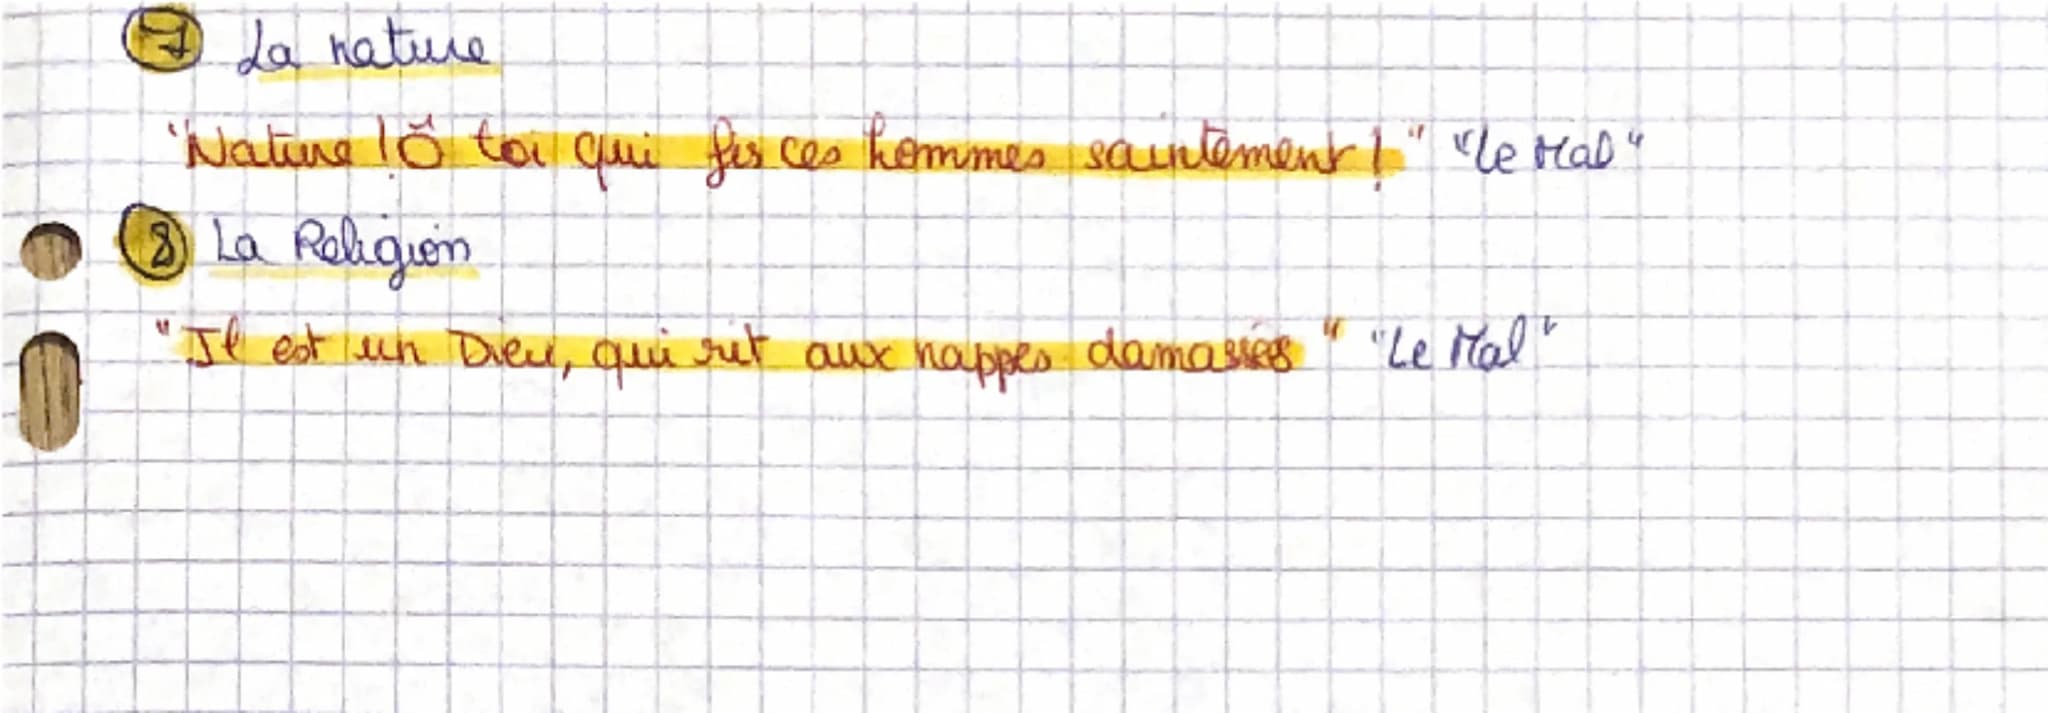 7 La nature
"Nature ! Ô toi qui fis ces hommes saintement ! " "Le Mal"
8 La Religion
"Il est un Dieu, qui rit aux nappes damassées " "Le Mal"